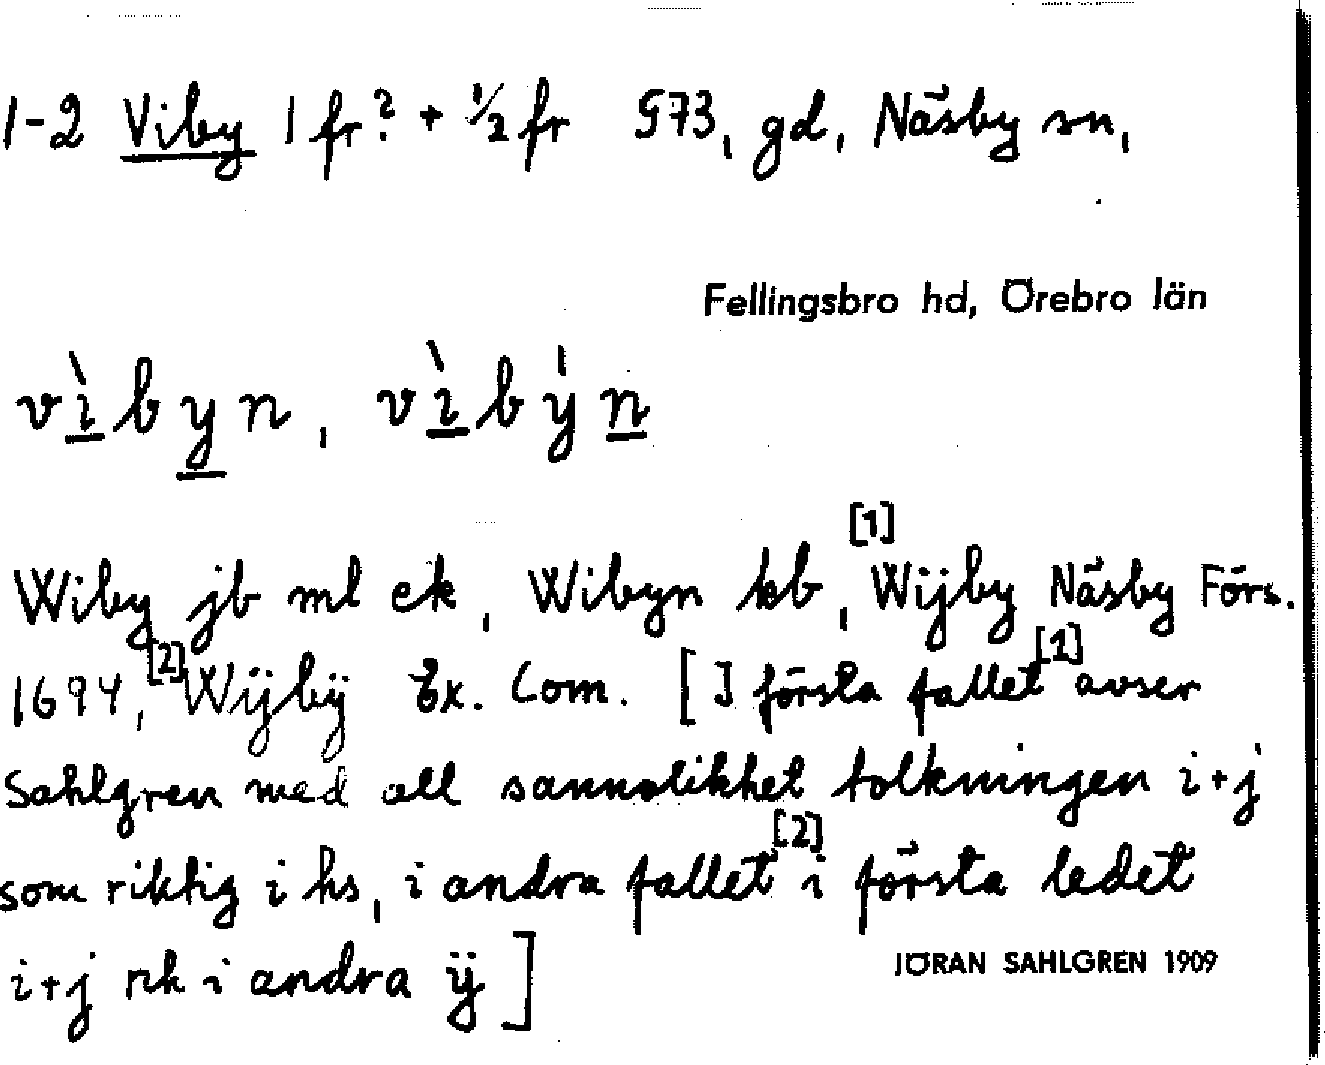 1-2 Viby 1 fr? + 1/2 fr G73, gd, Näsby sn,
Fellingsbro hd, Örebro län
vìbyn, vìbýn
Wiby jb ml ek, Wibyn kb, [1] Wijby Näsby Förs.
1694, [2] Wijbÿ Ex. Com. [I första fallet [1] avser
Sahlgren med all sannolikhet tolkningen i+j
som riktig i hs, i andra fallet [2] i första ledet
i+j rik i andra ÿ]
JÖRAN SAHLGREN 1909